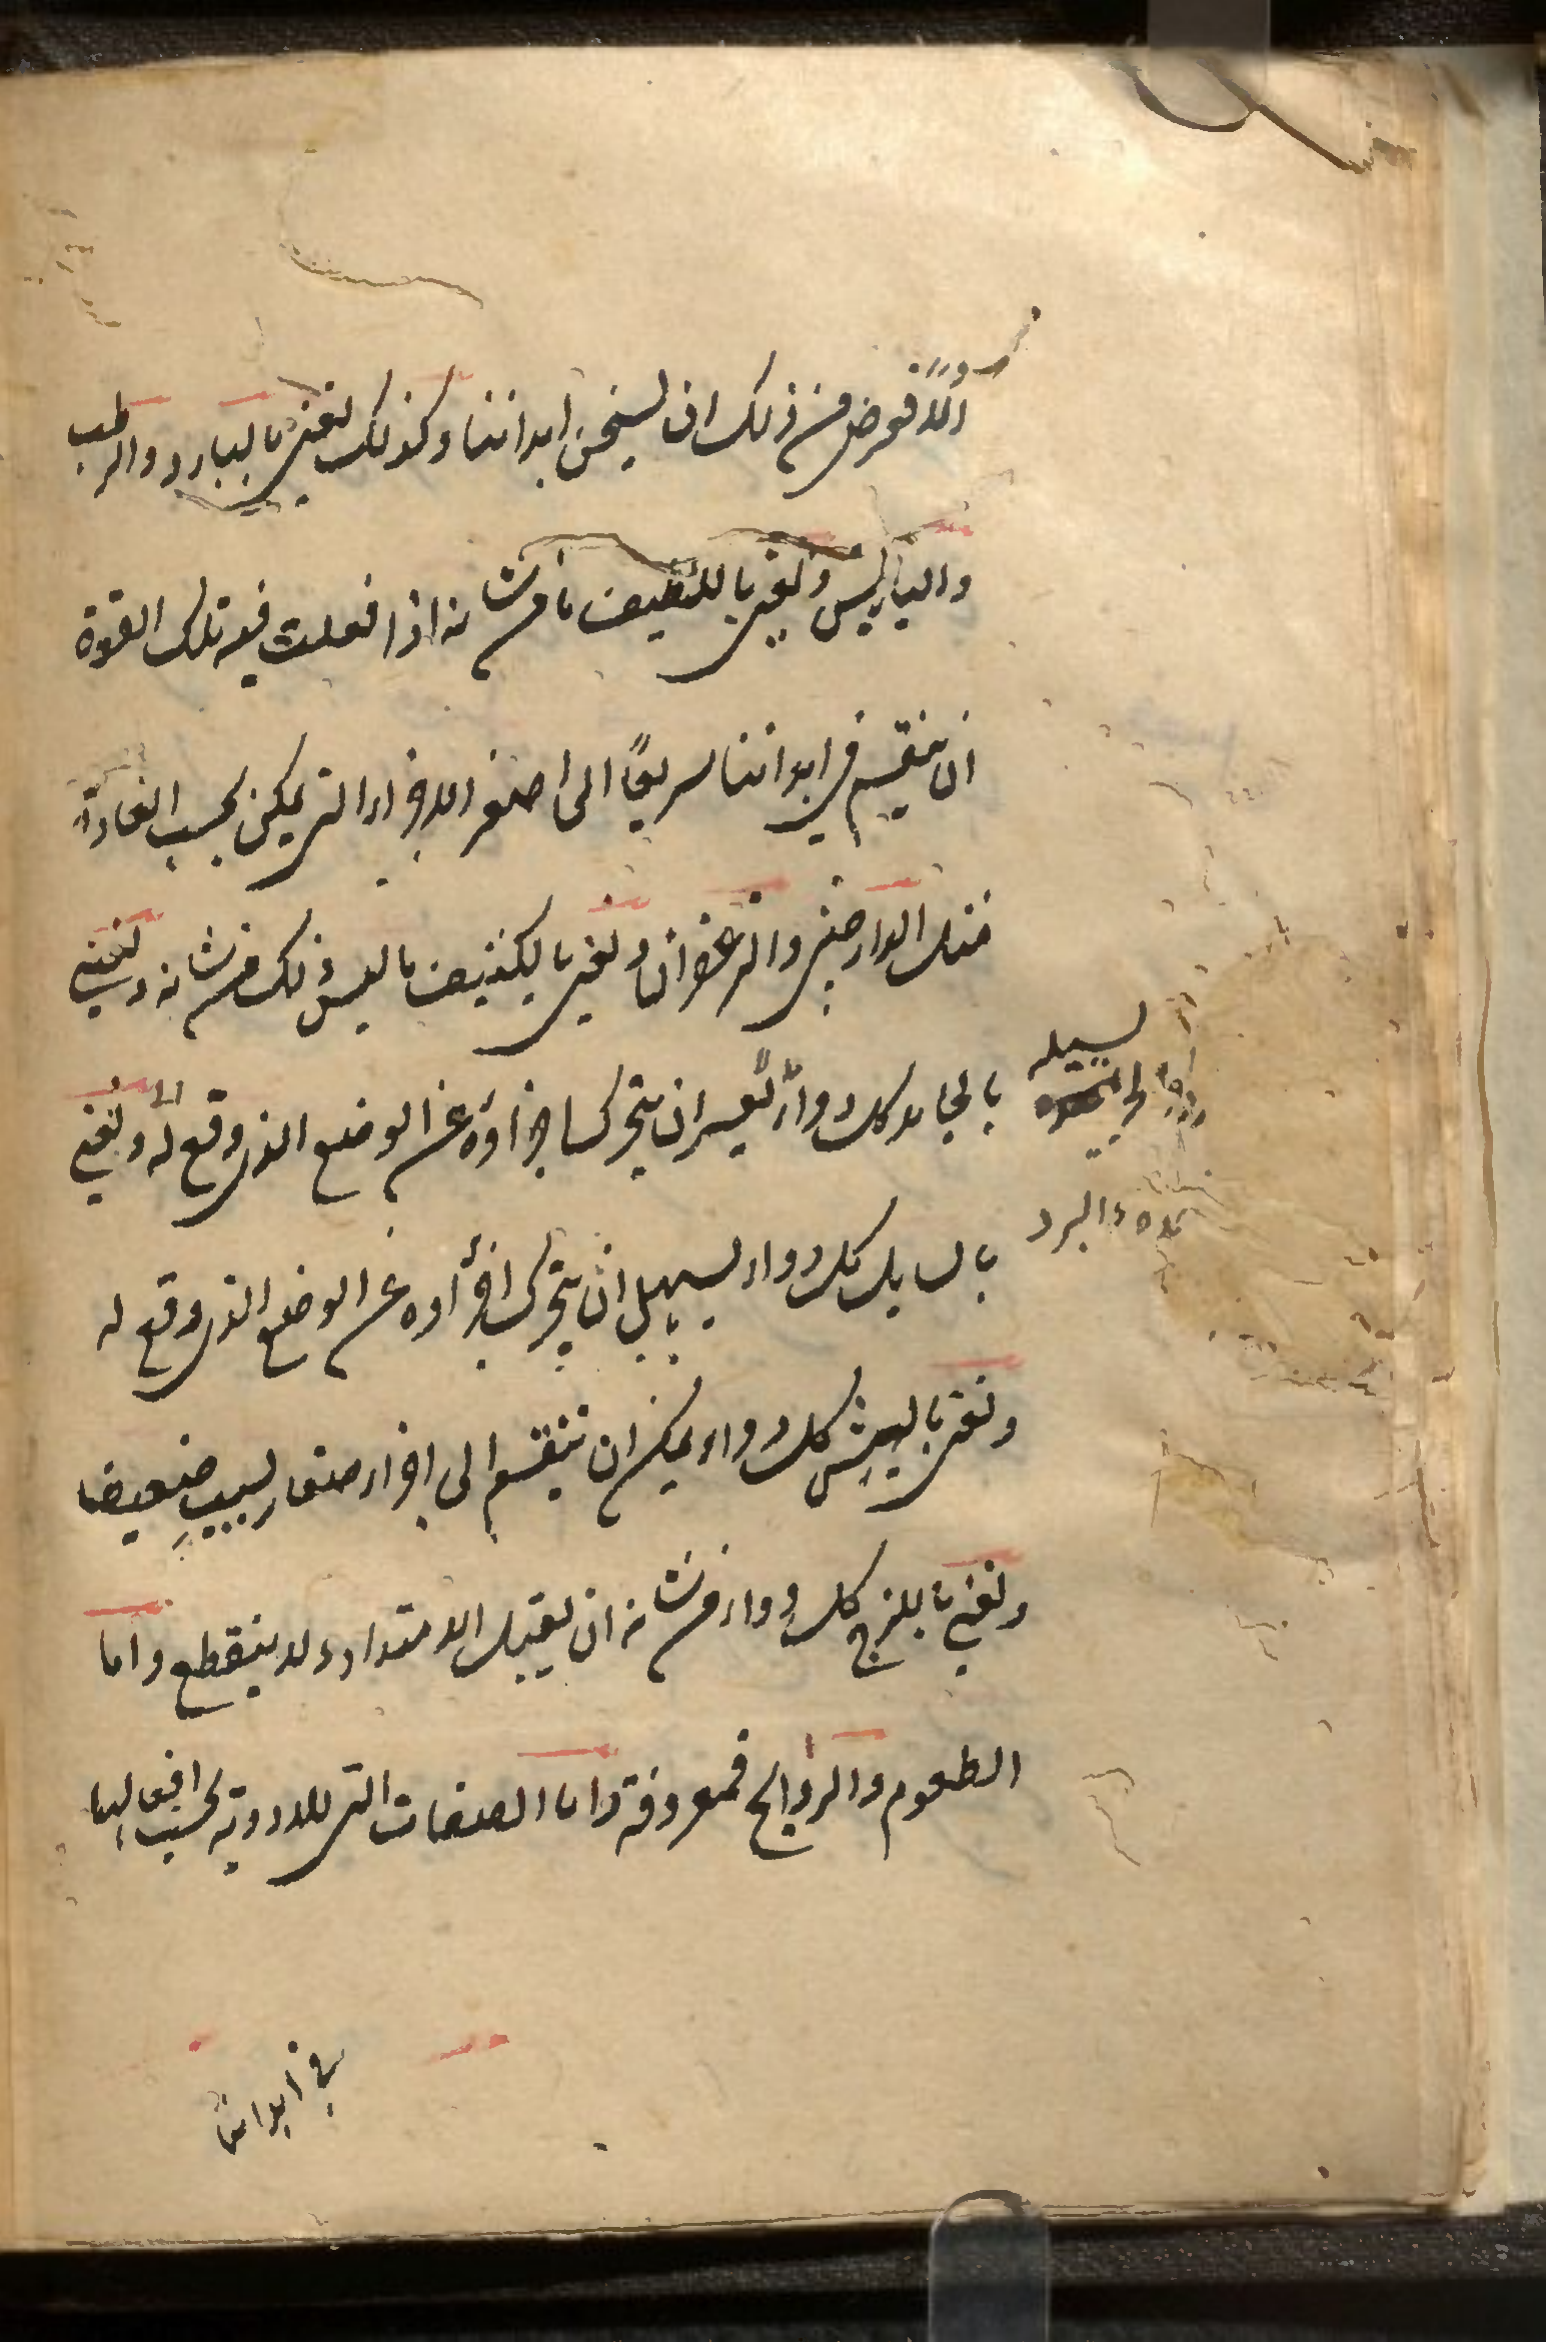 اولاً فعرض من ذلك ان يسخن ابداننا وكذلك نعني بالبارد والرطب
واليابس ونعني باللطيف ما من شانه اذا فعلت فيه تلك القوة
ان ينقسم في ابداننا سريعًا الى اصغر الاجزاء التي يمكن بحسب العادة
مثل الدارصيني والزعفران ونعني بالكثيف ما ليس ذلك من شانه ونعني
بالجامد كل دواء يعسر ان يتحرك اجزاؤه عن الوضع الذي وقع له ونعني
بالسايل كل دواء يسهل ان يتحرك اجزاؤه عن الوضع الذي وقع له
ونعني بالهش كل دواء يمكن ان ينقسم الى اجزاء صغار بسبب ضعيف
ونعني باللزج كل دواء من شانه ان يقبل الامتداد ولا ينقطع واما
الطعوم والروايح فمعروفة واما الصفات التي للادوية بحسب افعالها
في ابداننا
والبرد